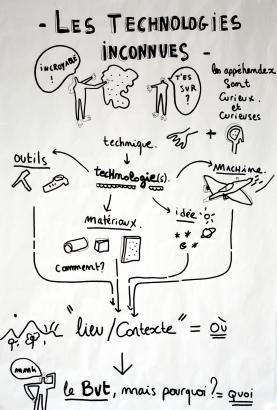 - LES TECHNOLOGIES
INCONNUES -
INCROYABLE
!
T'ES
SUR ?
les appéhendex
sont
curieux.
et
curieuses
technique.
+
OUTILS
technologie(s).
MACHINE.
matériaux.
idée
comment?
"lieu/Contexte" = OÙ
mmh
le BUT, mais pourquoi? = quoi